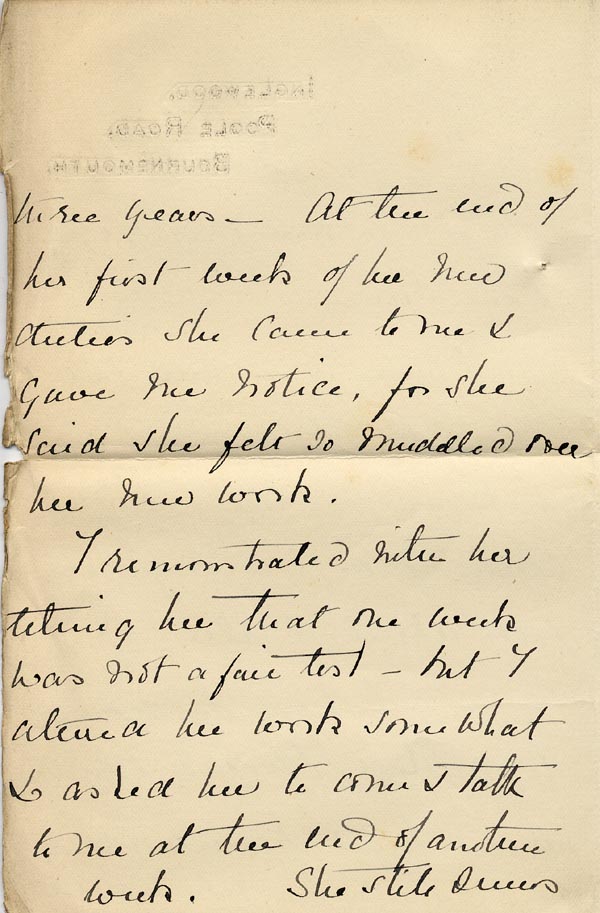 INGLEWOOD,
POOLE ROAD,
BOURNEMOUTH.
three years — At the end of
her first week of her new
duties she came to me &
gave me notice, for she
said she felt so muddled over
her new work.
I remonstrated with her
telling her that one week
was not a fair test — but I
altered her work somewhat
& asked her to come & talk
to me at the end of another
week. She still